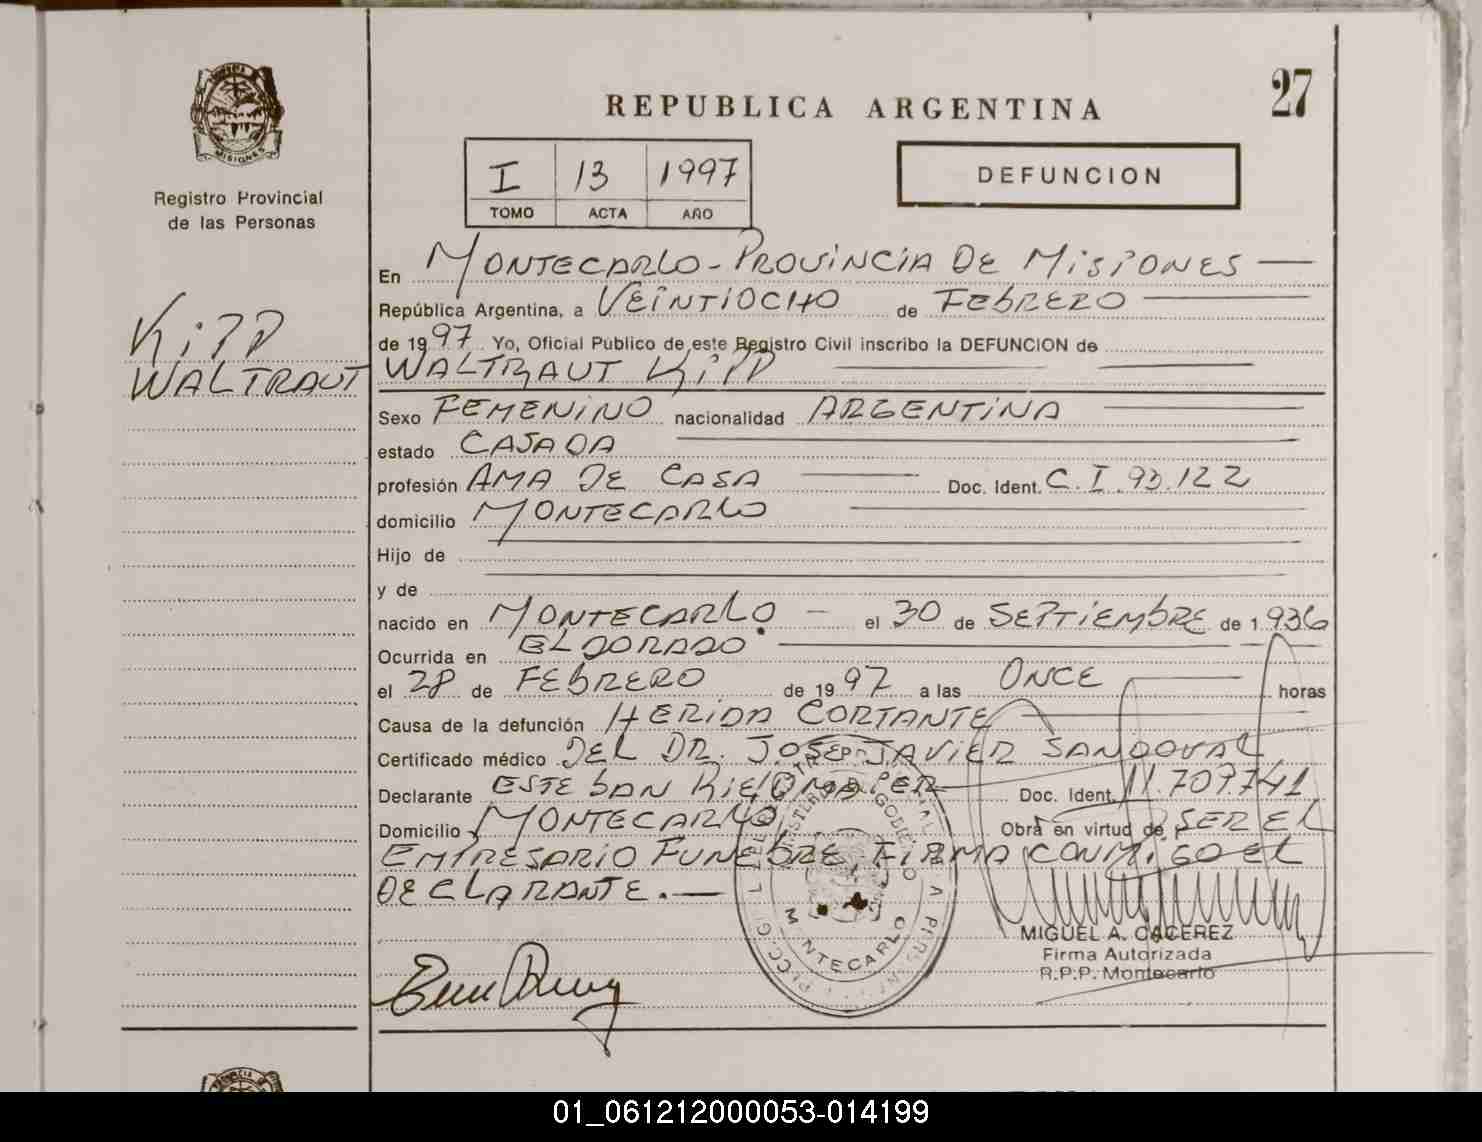 27
REPUBLICA ARGENTINA
MISIONES
Registro Provincial
de las Personas
I 13 1997
TOMO ACTA AÑO
DEFUNCION
Kipp
WALTRAUT
En MONTECARLO - PROVINCIA DE MISIONES
República Argentina, a VEINTIOCHO de FEBRERO
de 1997 Yo, Oficial Público de este Registro Civil inscribo la DEFUNCION de
WALTRAUT KIPP
Sexo FEMENINO nacionalidad ARGENTINA
estado CASADA
profesión AMA DE CASA Doc. Ident. C.I. 93.122
domicilio MONTECARLO
Hijo de
y de
nacido en MONTECARLO - el 30 de SEPTIEMBRE de 1.936
Ocurrida en ELDORADO
el 28 de FEBRERO de 1997 a las ONCE horas
Causa de la defunción HERIDA CORTANTE
Certificado médico DEL DR. JOSE JAVIER SANDOVAL
Declarante ESTEBAN Doc. Ident. 11.709.741
Domicilio MONTECARLO, Obra en virtud de SER EL
EMPRESARIO FUNEBRE. FIRMA CONMIGO EL
DECLARANTE.-
MONTECARLO
MIGUEL A. CACEREZ
Firma Autorizada
R.P.P. Montecarlo
01_061212000053-014199